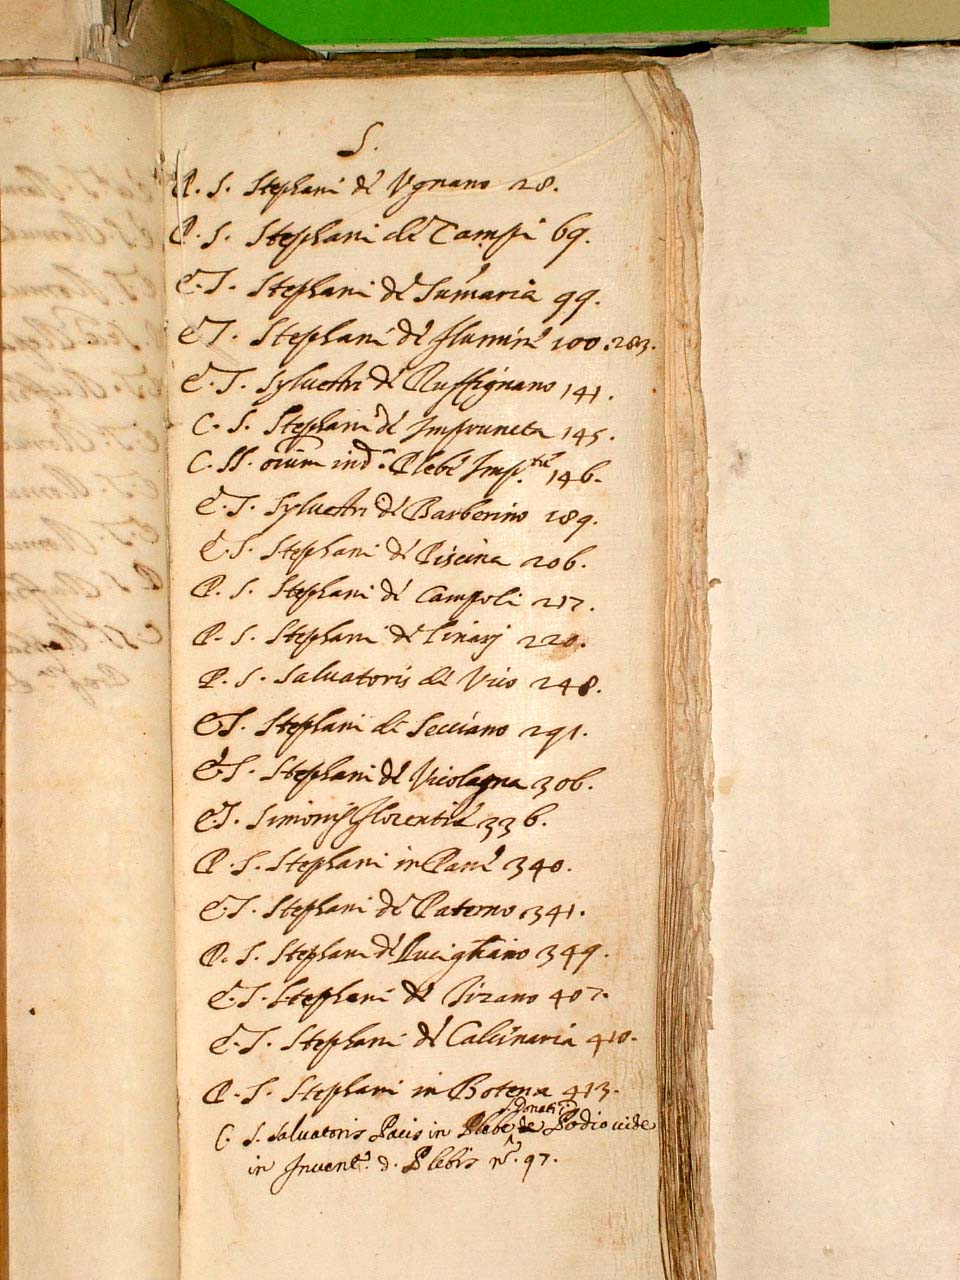 S.
P. S. Stephani de Ugnano 28.
P. S. Stephani de Campi 69.
E. S. Stephani de Sumaria 99.
E. S. Stephani de flumine 100. 283.
E. S. Sylvestri de Ruffignano 141.
C. S. Stephani de Impruneta 145.
C. SS. oium ind. Plebe Imp. 146.
E. S. Sylvestri de Barberino 189.
E. S. Stephani de Piscina 206.
P. S. Stephani de Campoli 217.
P. S. Stephani de Linarj 220.
P. S. Salvatoris de Vico 248.
E. S. Stephani de Secciano 291.
E. S. Stephani de Vicolagna 306.
E. S. Simonis Florentie 336.
P. S. Stephani in Pane 340.
E. S. Stephani de Paterno 341.
P. S. Stephani de Lucigliano 349.
E. S. Stephani de 407.
E. S. Stephani de Calcinaria 410.
P. S. Stephani in Botena 413.
S. Donati in
C. S. Salvatoris Pacis in Plebe de Podio vide
in Invent. d. Plebis n. 97.